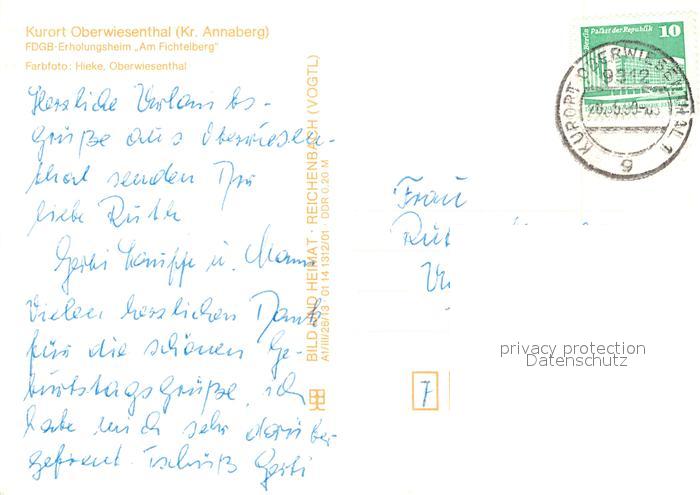 Kurort Oberwiesenthal (Kr. Annaberg)
FDGB-Erholungsheim „Am Fichtelberg"
Farbfoto: Hieke, Oberwiesenthal
Herzliche Urlaubs-
grüße aus Oberwiesen-
thal senden Dir
liebe Ruth
Gerti u. Mann
Vielen herzlichen Dank
für die schönen Ge-
burtstagsgrüße, ich
habe mich sehr darüber
gefreut. Tschüß Gerti
BILD UND HEIMAT · REICHENBACH (VOGTL)
A1/III/26/13 · 01 14 1312/01 DDR 0,20 M
Berlin Palast der Republik 10
KURORT OBERWIESENTHAL 1
9312
g
Frau
7
privacy protection
Datenschutz